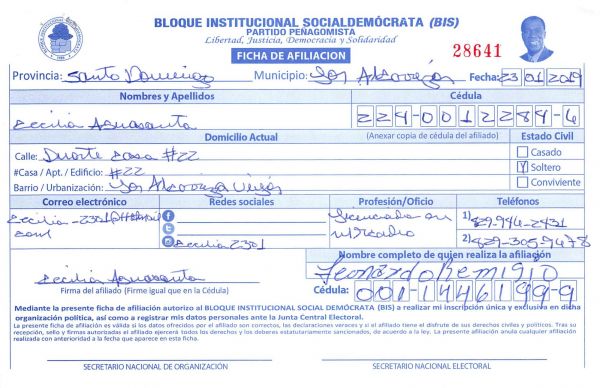 BLOQUE INSTITUCIONAL SOCIALDEMÓCRATA (BIS)
PARTIDO PEÑAGOMISTA
Libertad, Justicia, Democracia y Solidaridad
FICHA DE AFILIACION
28641
Provincia: Santo Domingo Municipio: Los Alcarrizos Fecha: 23 01 2019
Nombres y Apellidos Cédula
Cecilia 224-0012284-6
Domicilio Actual (Anexar copia de cédula del afiliado) Estado Civil
Calle: Duarte casa #22 Casado
#Casa / Apt. / Edificio: #22 Soltero
Barrio / Urbanización: Los Alcarrizos Viejos Conviviente
Correo electrónico Redes sociales Profesión/Oficio Teléfonos
Cecilia-2301@Hotmail Licenciada en 1) 829-946-2431
com Mercadeo 2) 829-305-9478
Cecilia2301
Nombre completo de quien realiza la afiliación
Cecilia Leonardo Remigio
Firma del afiliado (Firme igual que en la Cédula) Cédula: 001-1446199-9
Mediante la presente ficha de afiliación autorizo al BLOQUE INSTITUCIONAL SOCIAL DEMÓCRATA (BIS) a realizar mi inscripción única y exclusiva en dicha
organización política, así como a registrar mis datos personales ante la Junta Central Electoral.
La presente ficha de afiliación es válida si los datos ofrecidos por el afiliado son correctos, las declaraciones veraces y si el afiliado tiene el disfrute de sus derechos civiles y políticos. Tras su
recepción, sello y firmas autorizadas el afiliado ejercerá todos los derechos y los deberes estatutariamente sancionados, de acuerdo a la ley. La presente afiliación anula cualquier afiliación
realizada con anterioridad a la fecha que aparece en esta ficha.
SECRETARIO NACIONAL DE ORGANIZACIÓN SECRETARIO NACIONAL ELECTORAL